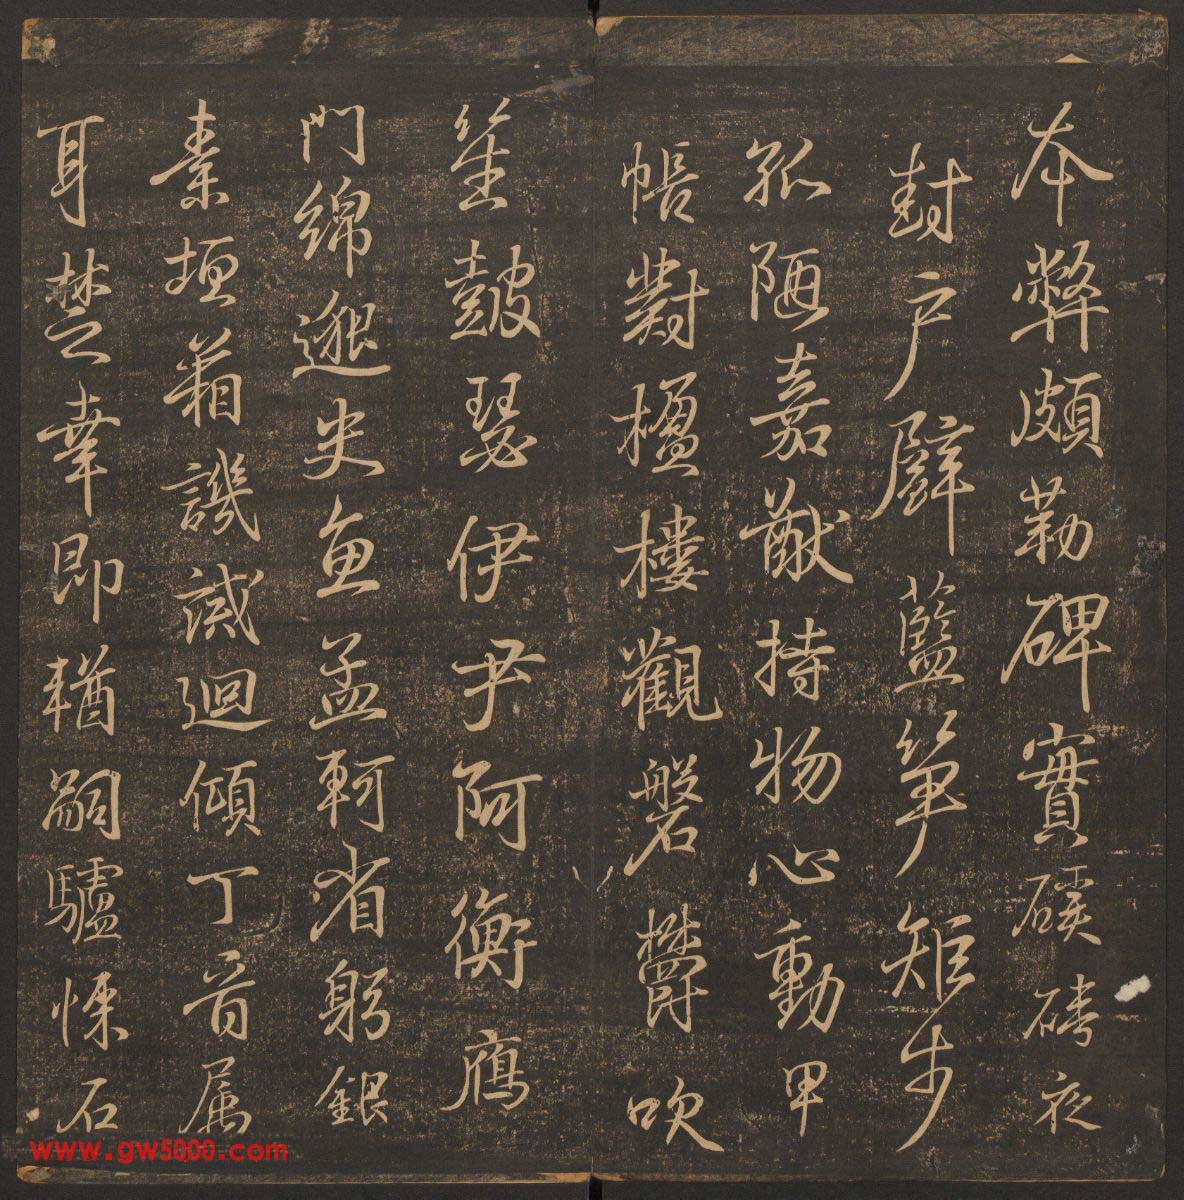 本弊頗勒碑實磎磚夜
封戶壁藍笋矩步
孤陋嘉猷持物心動甲
帳對楹樓觀磐欝吹
笙鼓瑟伊尹阿衡鴈
門綿邈史魚孟軻省躬銀
素垣藉譏誡迴傾丁音属
耳楚幸即輶嗣驢慄石
www.gw5000.com